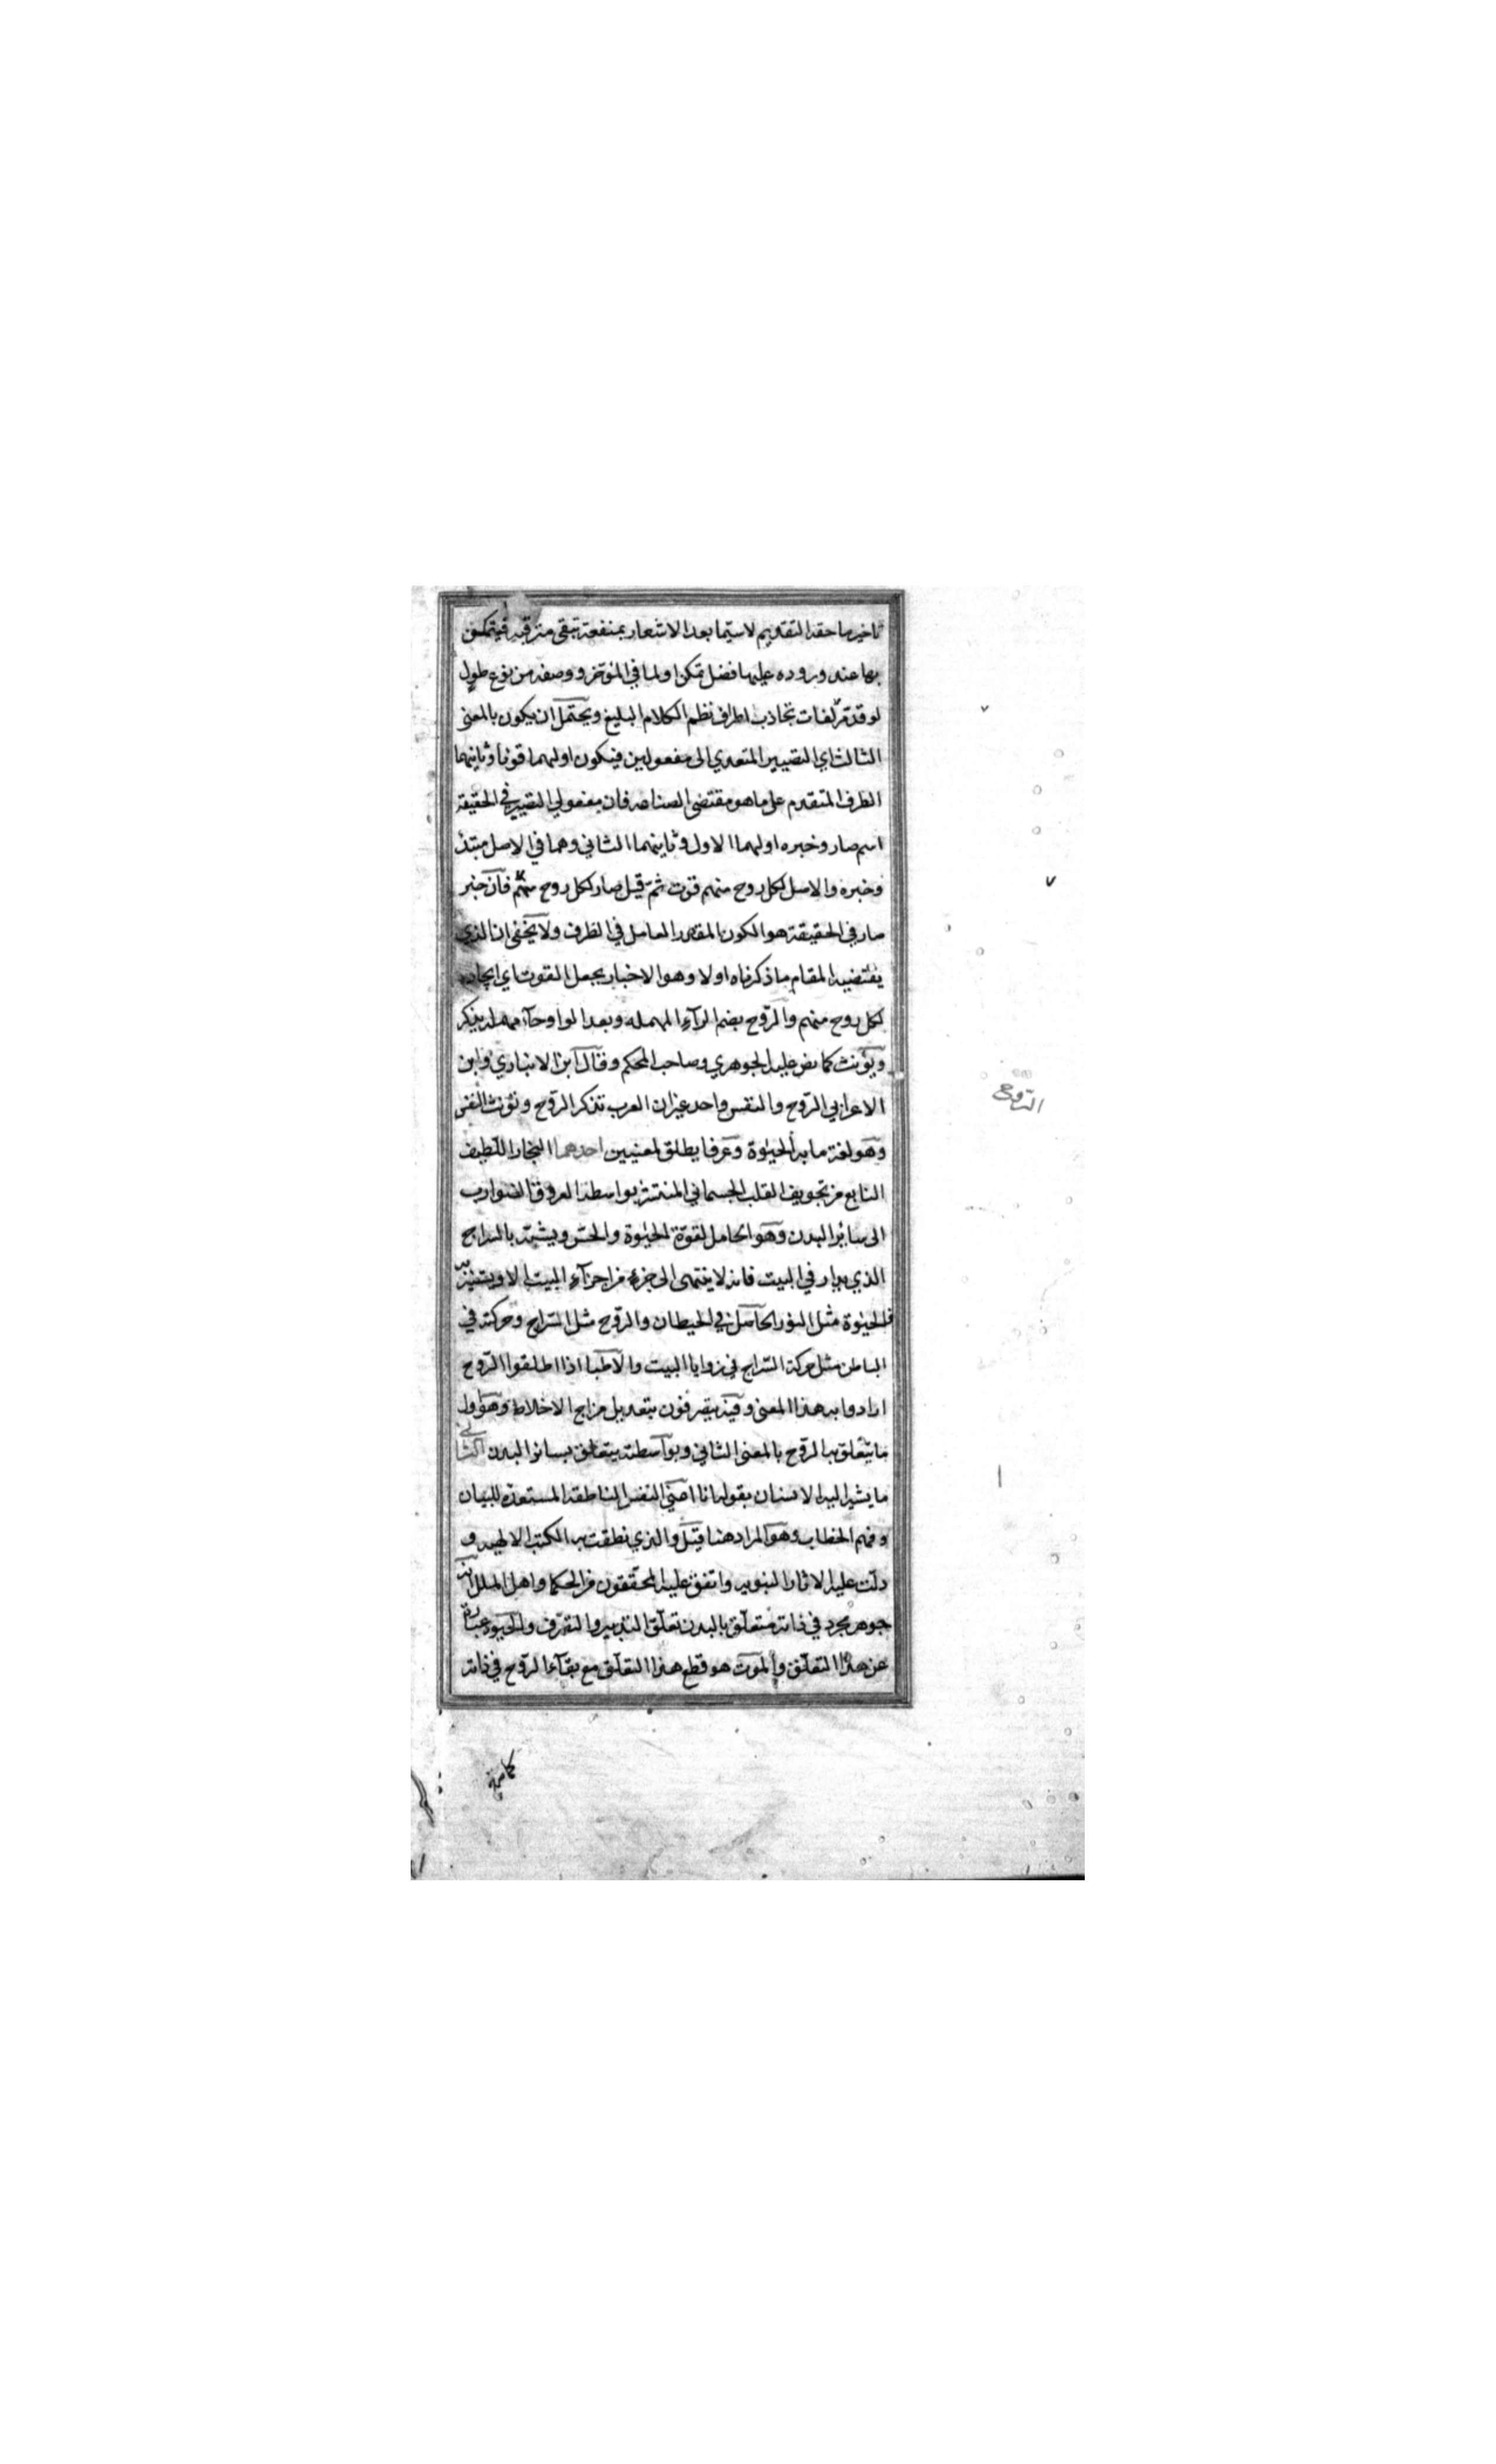 تاخير ما حقه التقديم لاسيما بعد الاشعار بمنفعته تبقى مترقبة فيتمكن
بها عند وروده عليها فضل تمكن ولما في المؤخر ووصفه من نوع طول
لو قدم لفات تجاذب اطراف نظم الكلام البليغ ويحتمل ان يكون بالمعنى
الثالث اي التصيير المتعدي الى مفعولين فيكون اولهما قوتا وثانيهما
الظرف المتقدم على ما هو مقتضى الصناعه فان مفعولي التصيير في الحقيقة
اسم صار وخبره اولهما الاول وثانيهما الثاني وهما في الاصل مبتدأ
وخبره والاصل لكل روح منهم قوت ثمّ قيل صار لكل روح منهم فان خبر
صار في الحقيقة هو الكون المقدر العامل في الظرف ولا يخفى ان الذي
يقتضيه المقام ما ذكرناه اولا وهو الاخبار بجعل القوت اي ايجاده
لكل روح منهم والرّوح بضم الرآء المهمله وبعد الواو حآء مهمله يذكر
ويؤنث كما نص عليه الجوهري وصاحب المحكم وقال ابن الانباري وابن
الاعرابي الرّوح والنفس واحد غير ان العرب تذكر الرّوح وتؤنث النفس
وهو لغة ما به الحيٰوة وعرفا يطلق لمعنيين احدهما البخار اللّطيف
النابع من تجويف القلب الجسماني المنتشر بواسطة العروق الضوارب
الى سائر البدن وهو الحامل لقوّة الحيٰوة والحسّ ويشبّه بالسراج
الذي يدار في البيت فانه لا ينتهى الى جزء من اجزآء البيت الا ويستنير به
فالحيٰوة مثل النور الحاصل في الحيطان والرّوح مثل السّراج وحركته في
الباطن مثل حركة السّراج في زوايا البيت والاطبا اذا اطلقوا الرّوح
ارادوا به هذا المعنى وفيه يتصرفون بتعديل مزاج الاخلاط وهو اول
ما يتعلق به الرّوح بالمعنى الثاني وبواسطته يتعلق بسائر البدن الثاني
ما يشير اليه الانسان بقوله انا اعني النفس الناطقة المستعدّة للبيان
وفهم الخطاب وهو المراد هنا قيل والذي نطقت به الكتب الالهيه و
دلّت عليه الاثار النبويه واتفق عليه المحقّقون من الحكما واهل الملل انه
جوهر مجرد في ذاته متعلّق بالبدن تعلّق التدبير والتصّرف والحيٰوة عبارة
عن هذا التعلّق والموت هو قطع هذا التعلّق مع بقآء الرّوح في ذاته
الرّوح